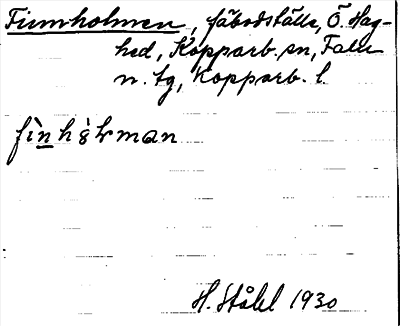 Finnholmen, fäbodställe, Ö. Hag-
hed, Kopparb. sn, Falu
n. tg, Kopparb. l.
fìnhòlman
H. Ståhl 1930